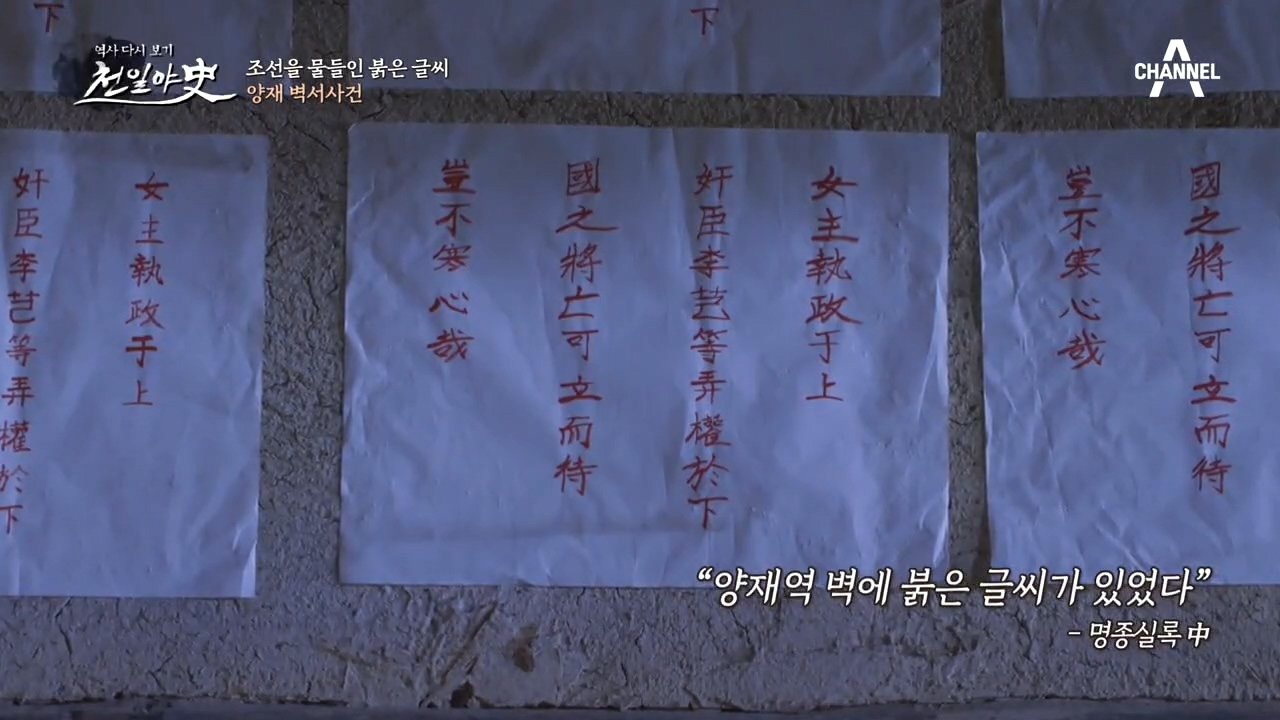 역사 다시 보기
천일야史
조선을 물들인 붉은 글씨
양재 벽서사건
CHANNEL A
下
下
女主執政于上
奸臣李芑等弄權於下
女主執政于上
奸臣李芑等弄權於下
國之將亡可立而待
豈不寒心哉
國之將亡可立而待
豈不寒心哉
“양재역 벽에 붉은 글씨가 있었다”
- 명종실록 中